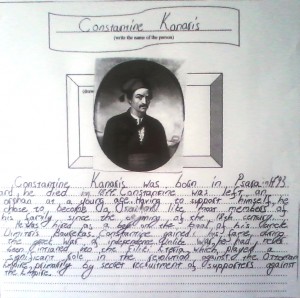 Constantine Kanaris
(write the name of the person)
(draw
Constantine Kanaris was born in Psara 1793
and he died in Constantine was left an
orphan at a young age. Having to support himself, he
chose to become a like most members of
his family since the beginning of the 18th
He was hired as a boy on the of his uncle
Dimitris Bourekas. Constantine gained his fame during
the great war of independence. Unlike he had never
been initiated into the Filiki Eteria which played a
significant role in the revolution against the Ottoman
Empire, primarily by secret recruitment of supporters against
the Empire.